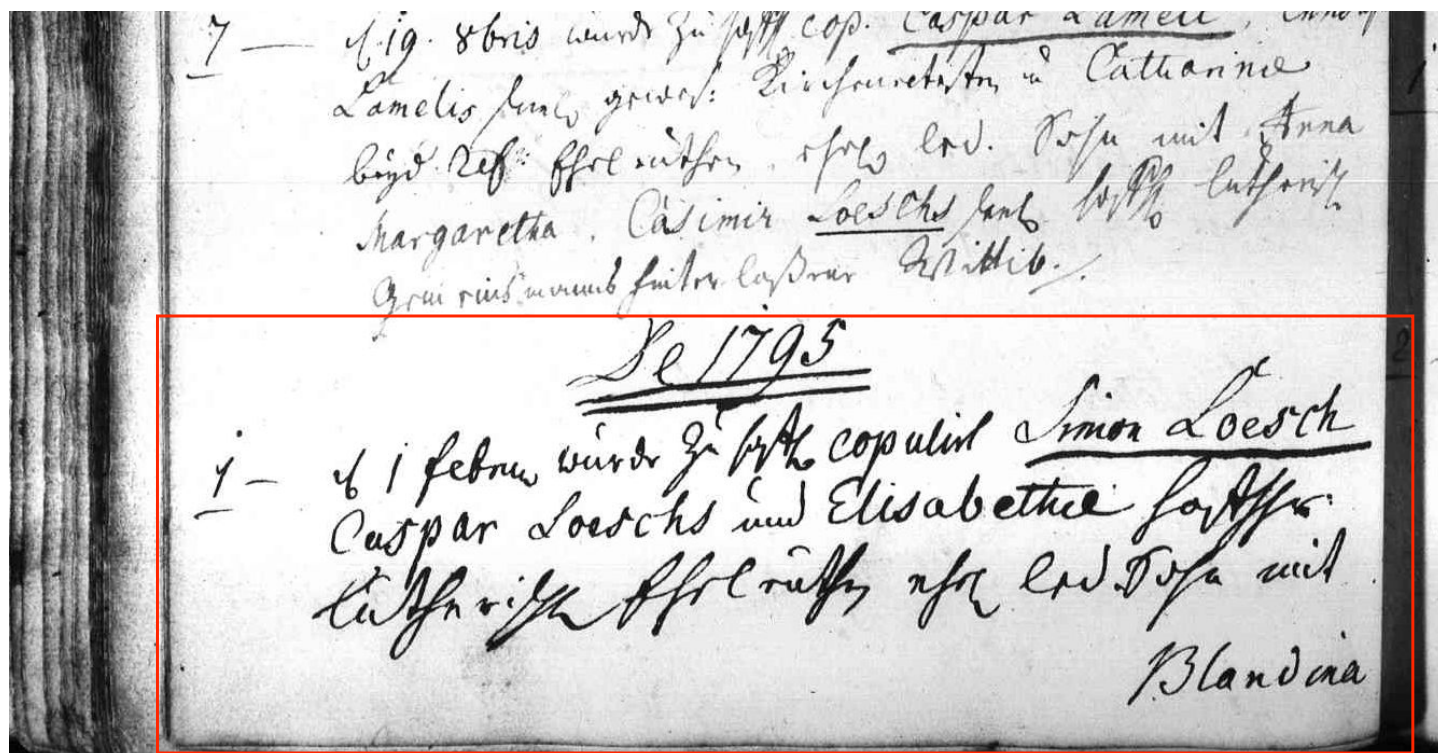 7 — d. 19. 8bris wurde zu cop. Caspar Lamell,
Lamelis seel. gewes: Kirchenältesten u Catharinae
beyd. Ref: Eheleuthen, ehel. led. Sohn mit Anna
Margaretha, Casimir Loeschs seel. lutherisch
Gemeinsmanns hinterlaßene Wittib.
De 1795
1 — d 1 febru wurde zu copulirt Simon Loesch
Caspar Loeschs und Elisabethae
lutherisch Eheleuthen ehel led. Sohn mit
Blandina